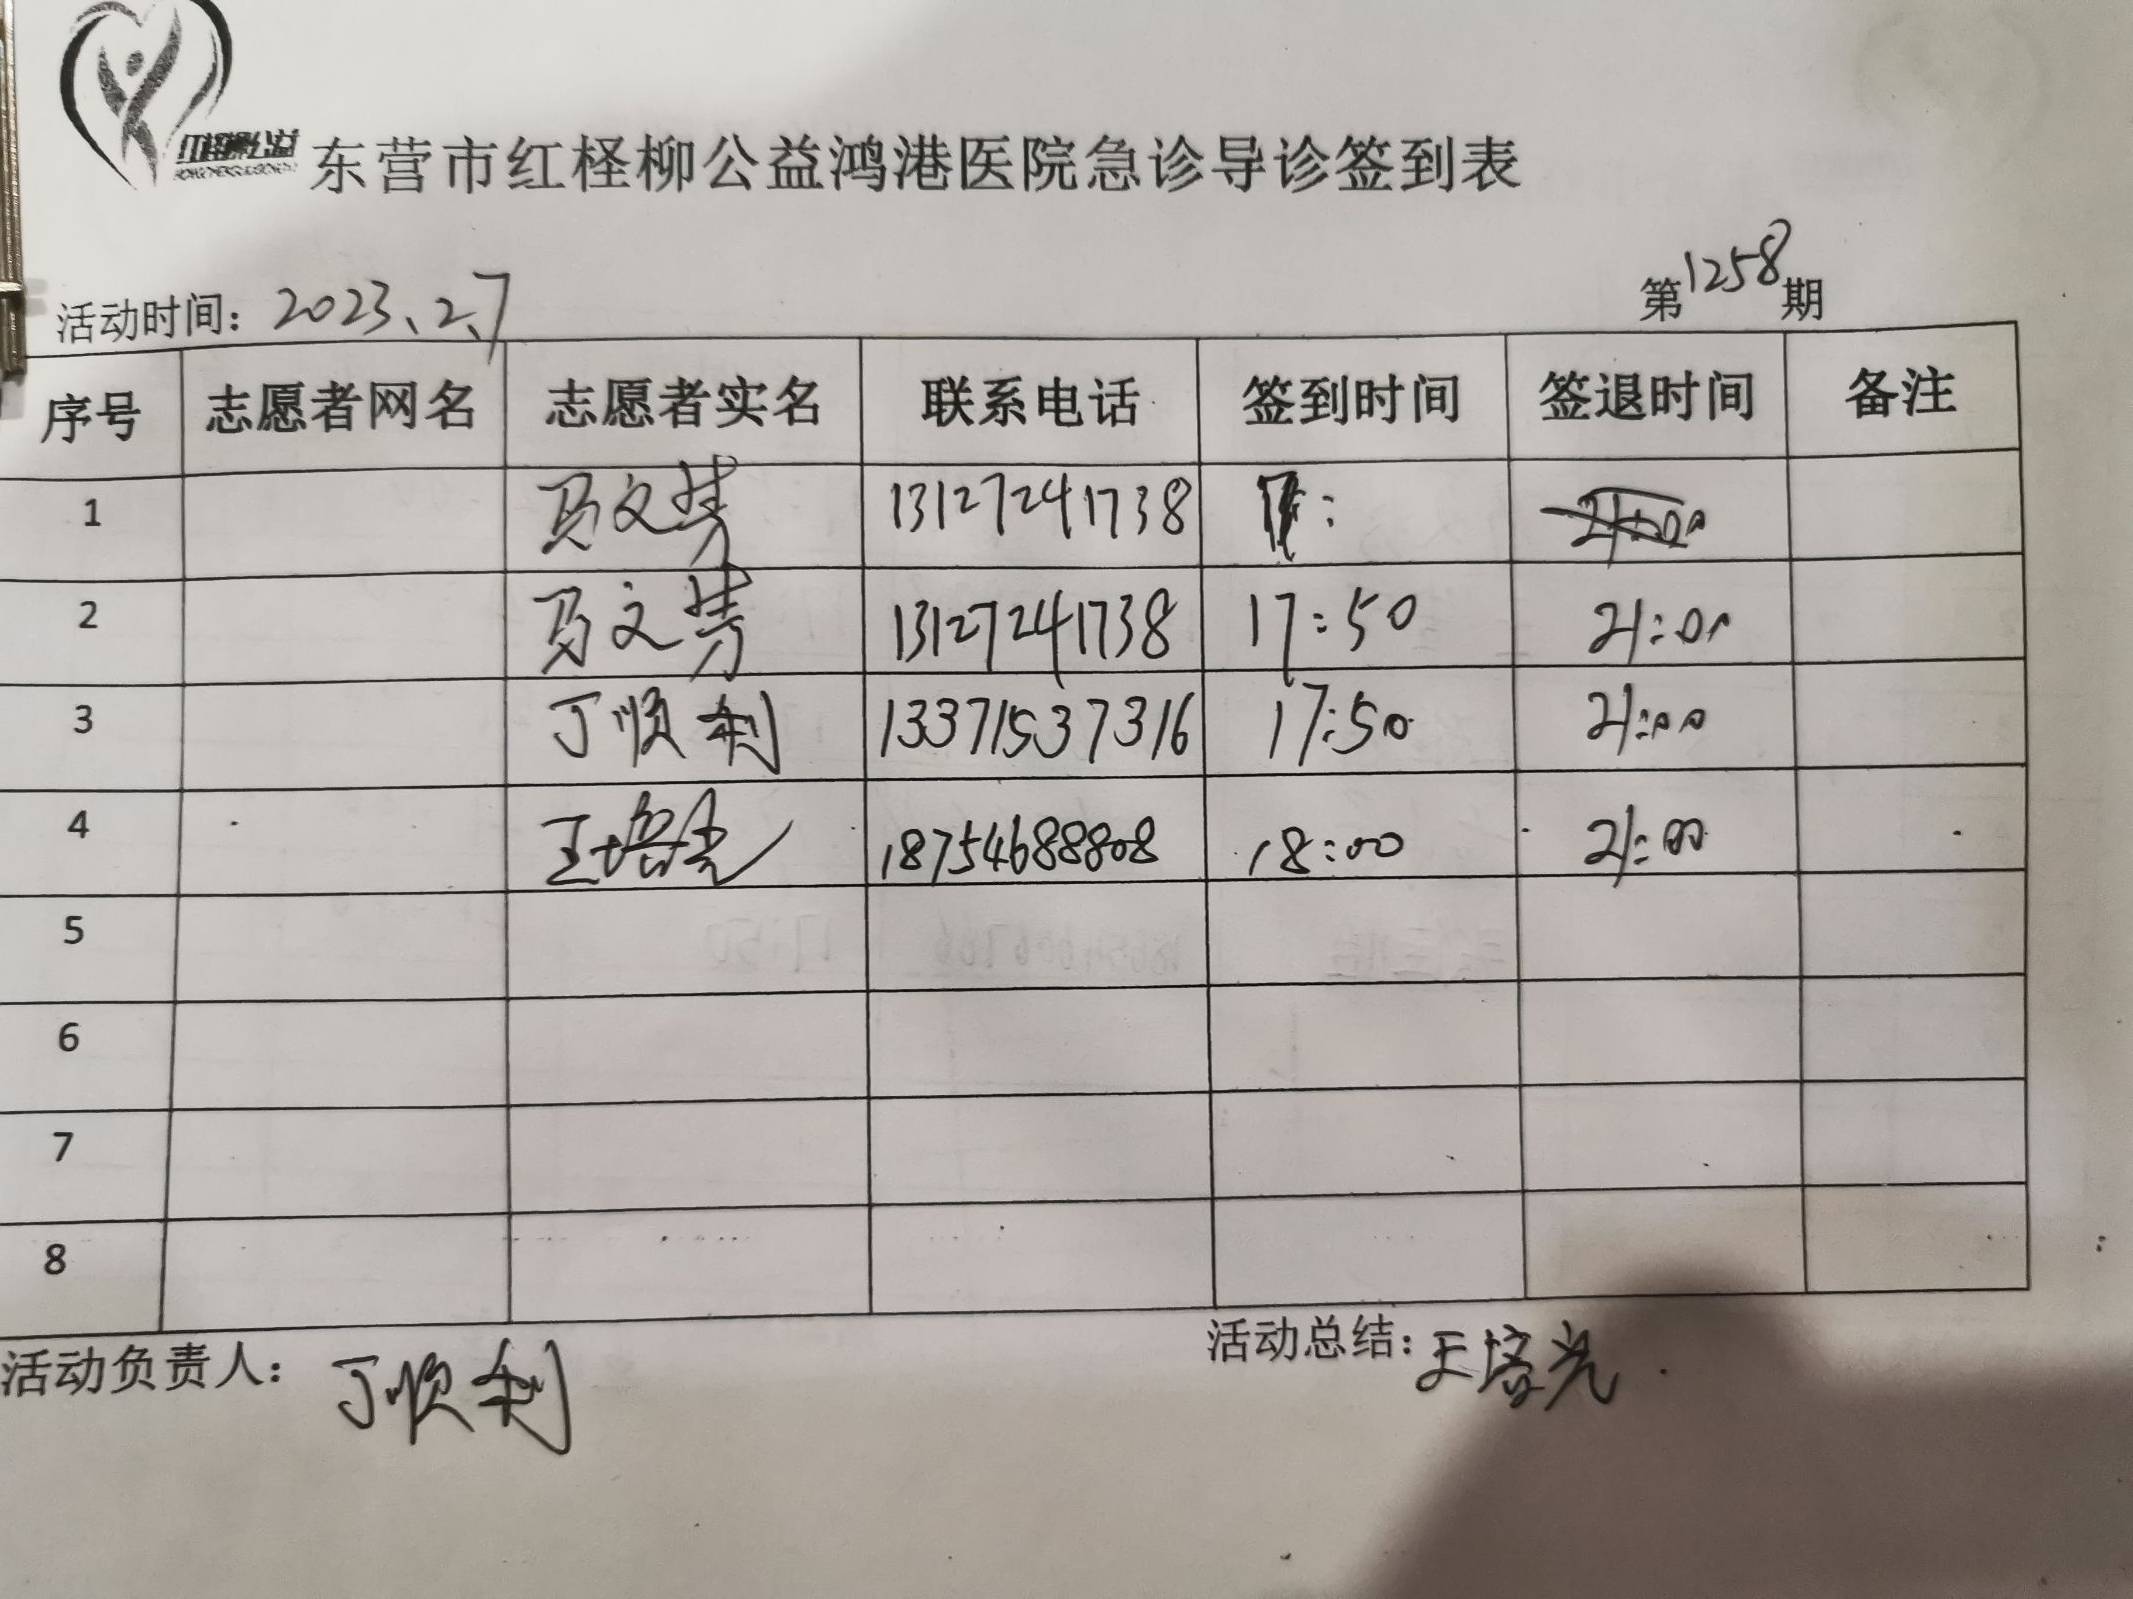 红柽柳公益
东营市红柽柳公益鸿港医院急诊导诊签到表
活动时间：2023、2、7 第1258期
序号 志愿者网名 志愿者实名 联系电话 签到时间 签退时间 备注
1 马文芳 13127241738 : 21:00
2 马文芳 13127241738 17:50 21:00
3 丁顺利 13371537316 17:50 21:00
4 王培光 18754688808 18:00 21:00
5
6
7
8
活动负责人：丁顺利 活动总结：王培光